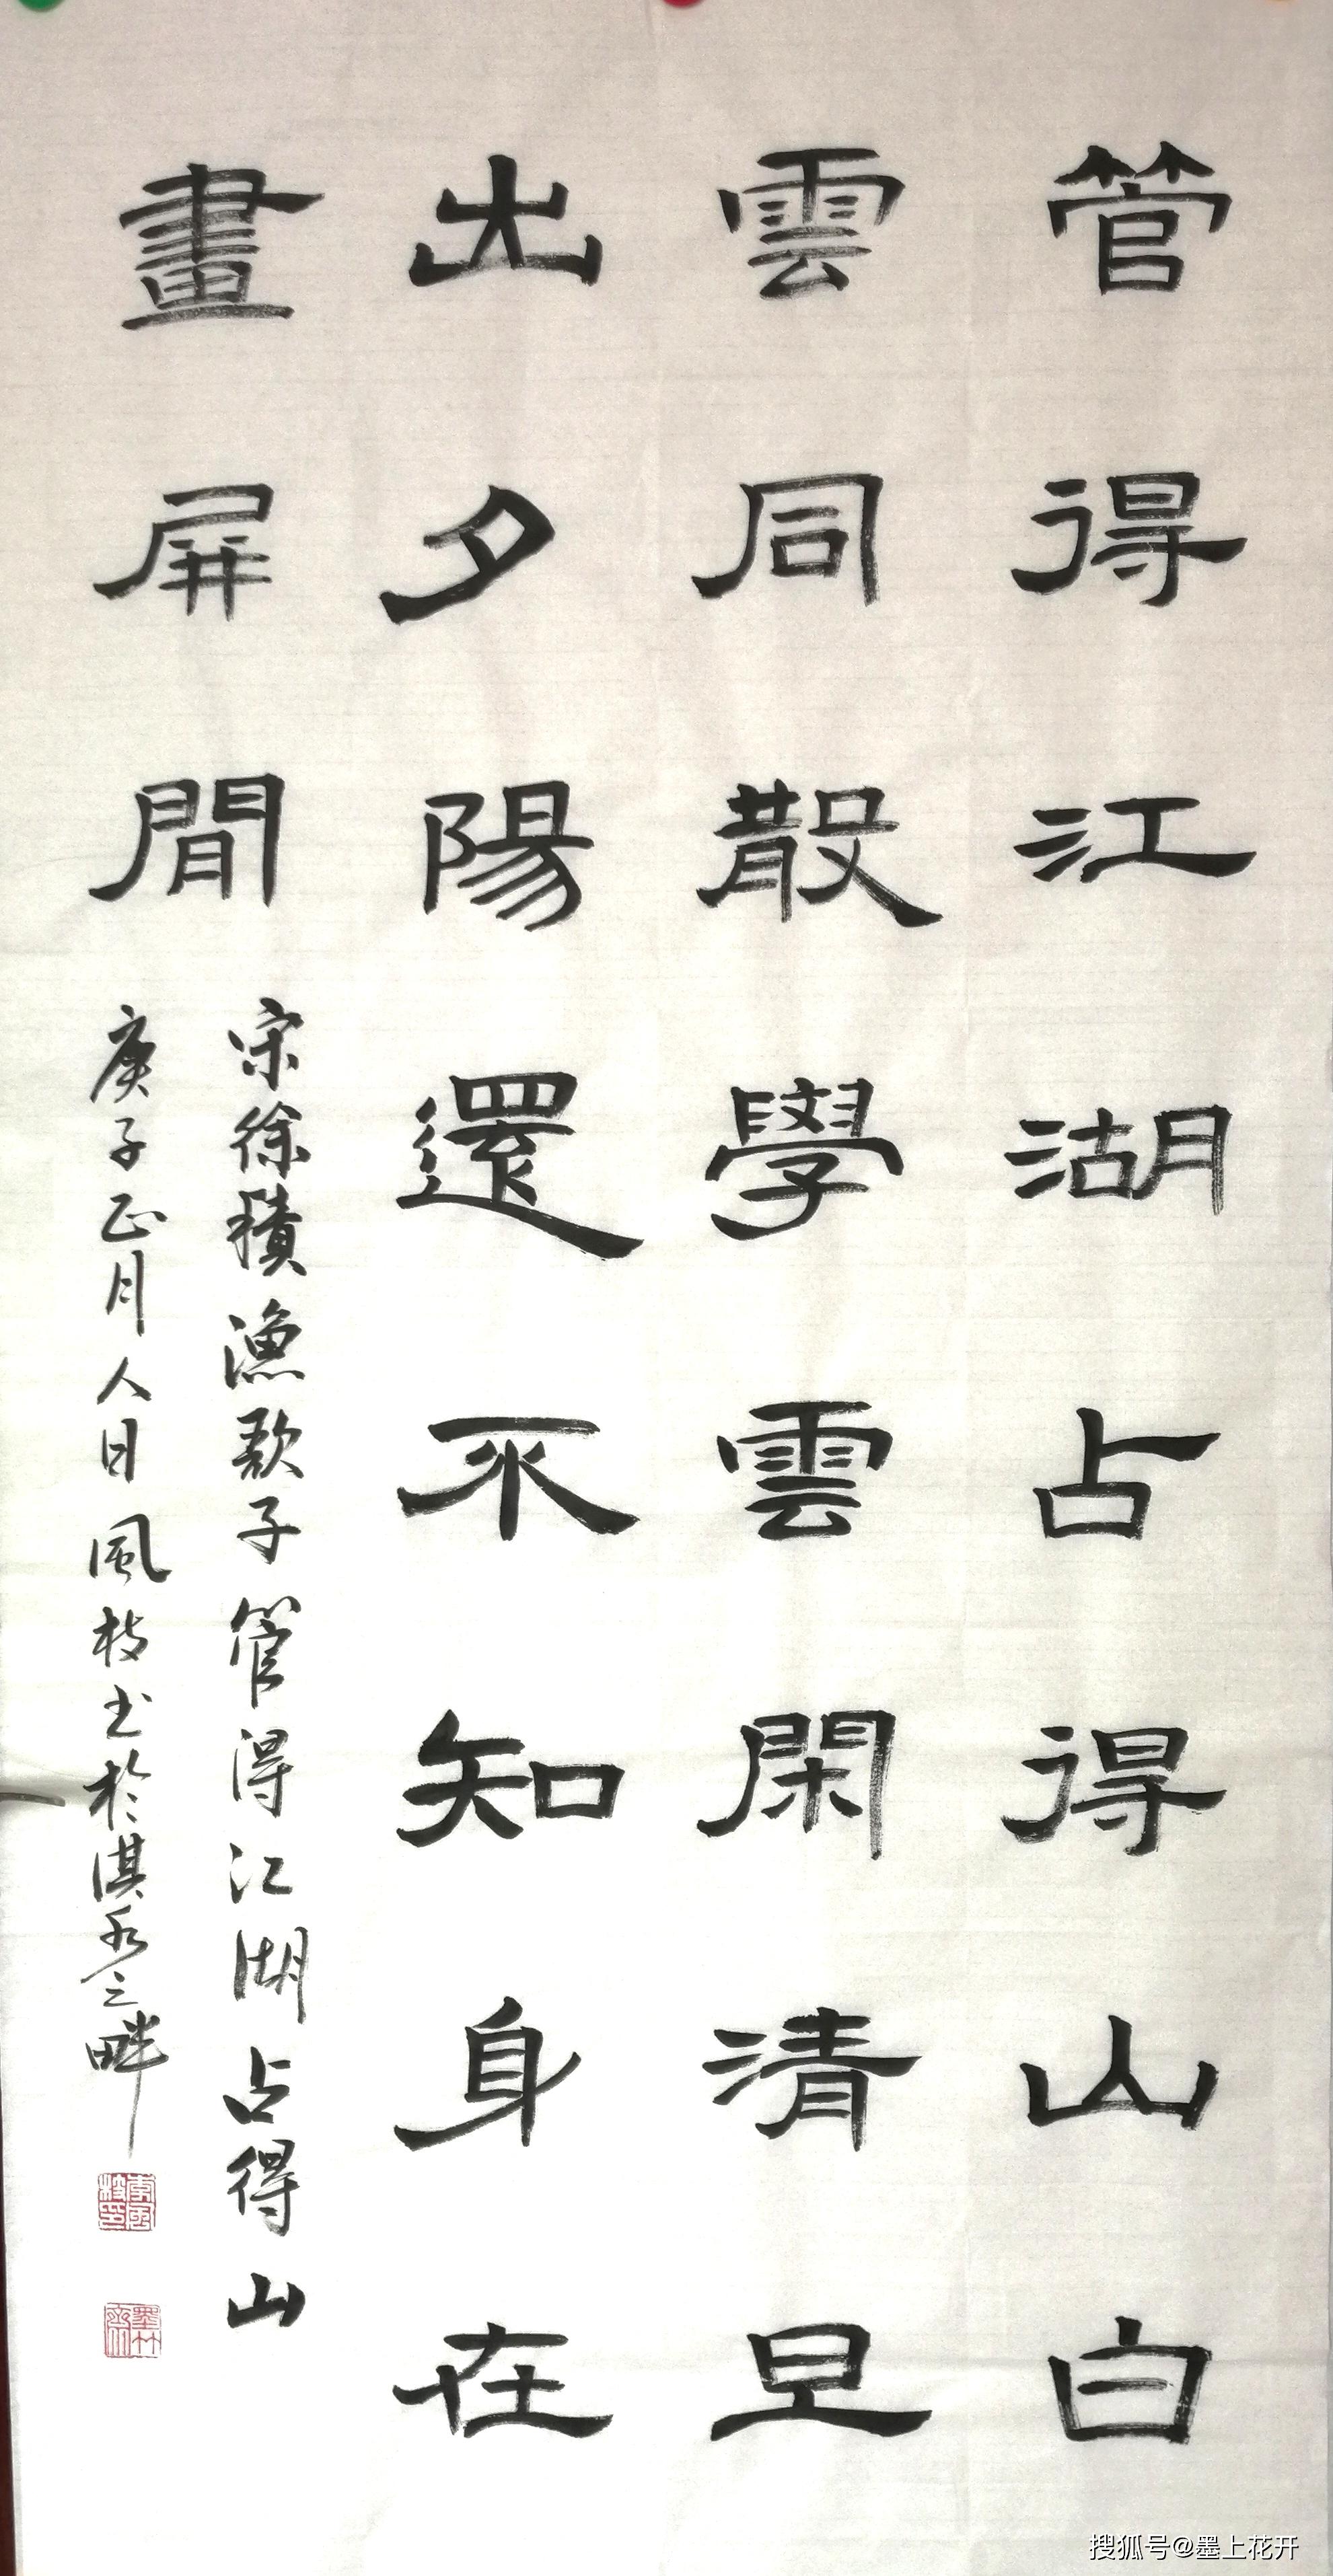 管得江湖占得山白
雲同散學雲閑清旦
出夕陽還不知身在
畫屏間
宋徐積漁歌子管得江湖占得山
庚子正月人日風枝書於淇水之畔
李風枝印
墨竹齋
搜狐号@墨上花开